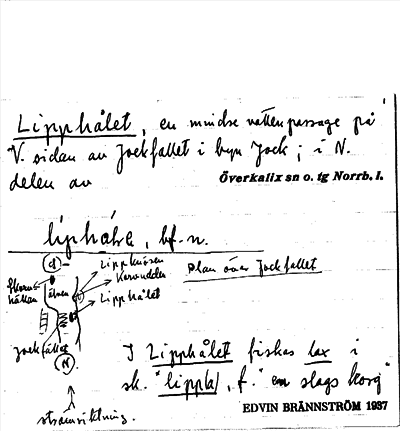 Lipphålet, en mindre vattenpassage på
V. sidan av Jockfallet i byn Jock; i N.
delen av Överkalix sn o. tg Norrb. l.
bf. n.
Lippkuosen
älven
Lipphålet
Plan över Jockfallet
Jockfallet
N
I Lipphålet fiskas lax i
sk. "lippa", f. "en slags korg"
EDVIN BRÄNNSTRÖM 1937
strömriktning.